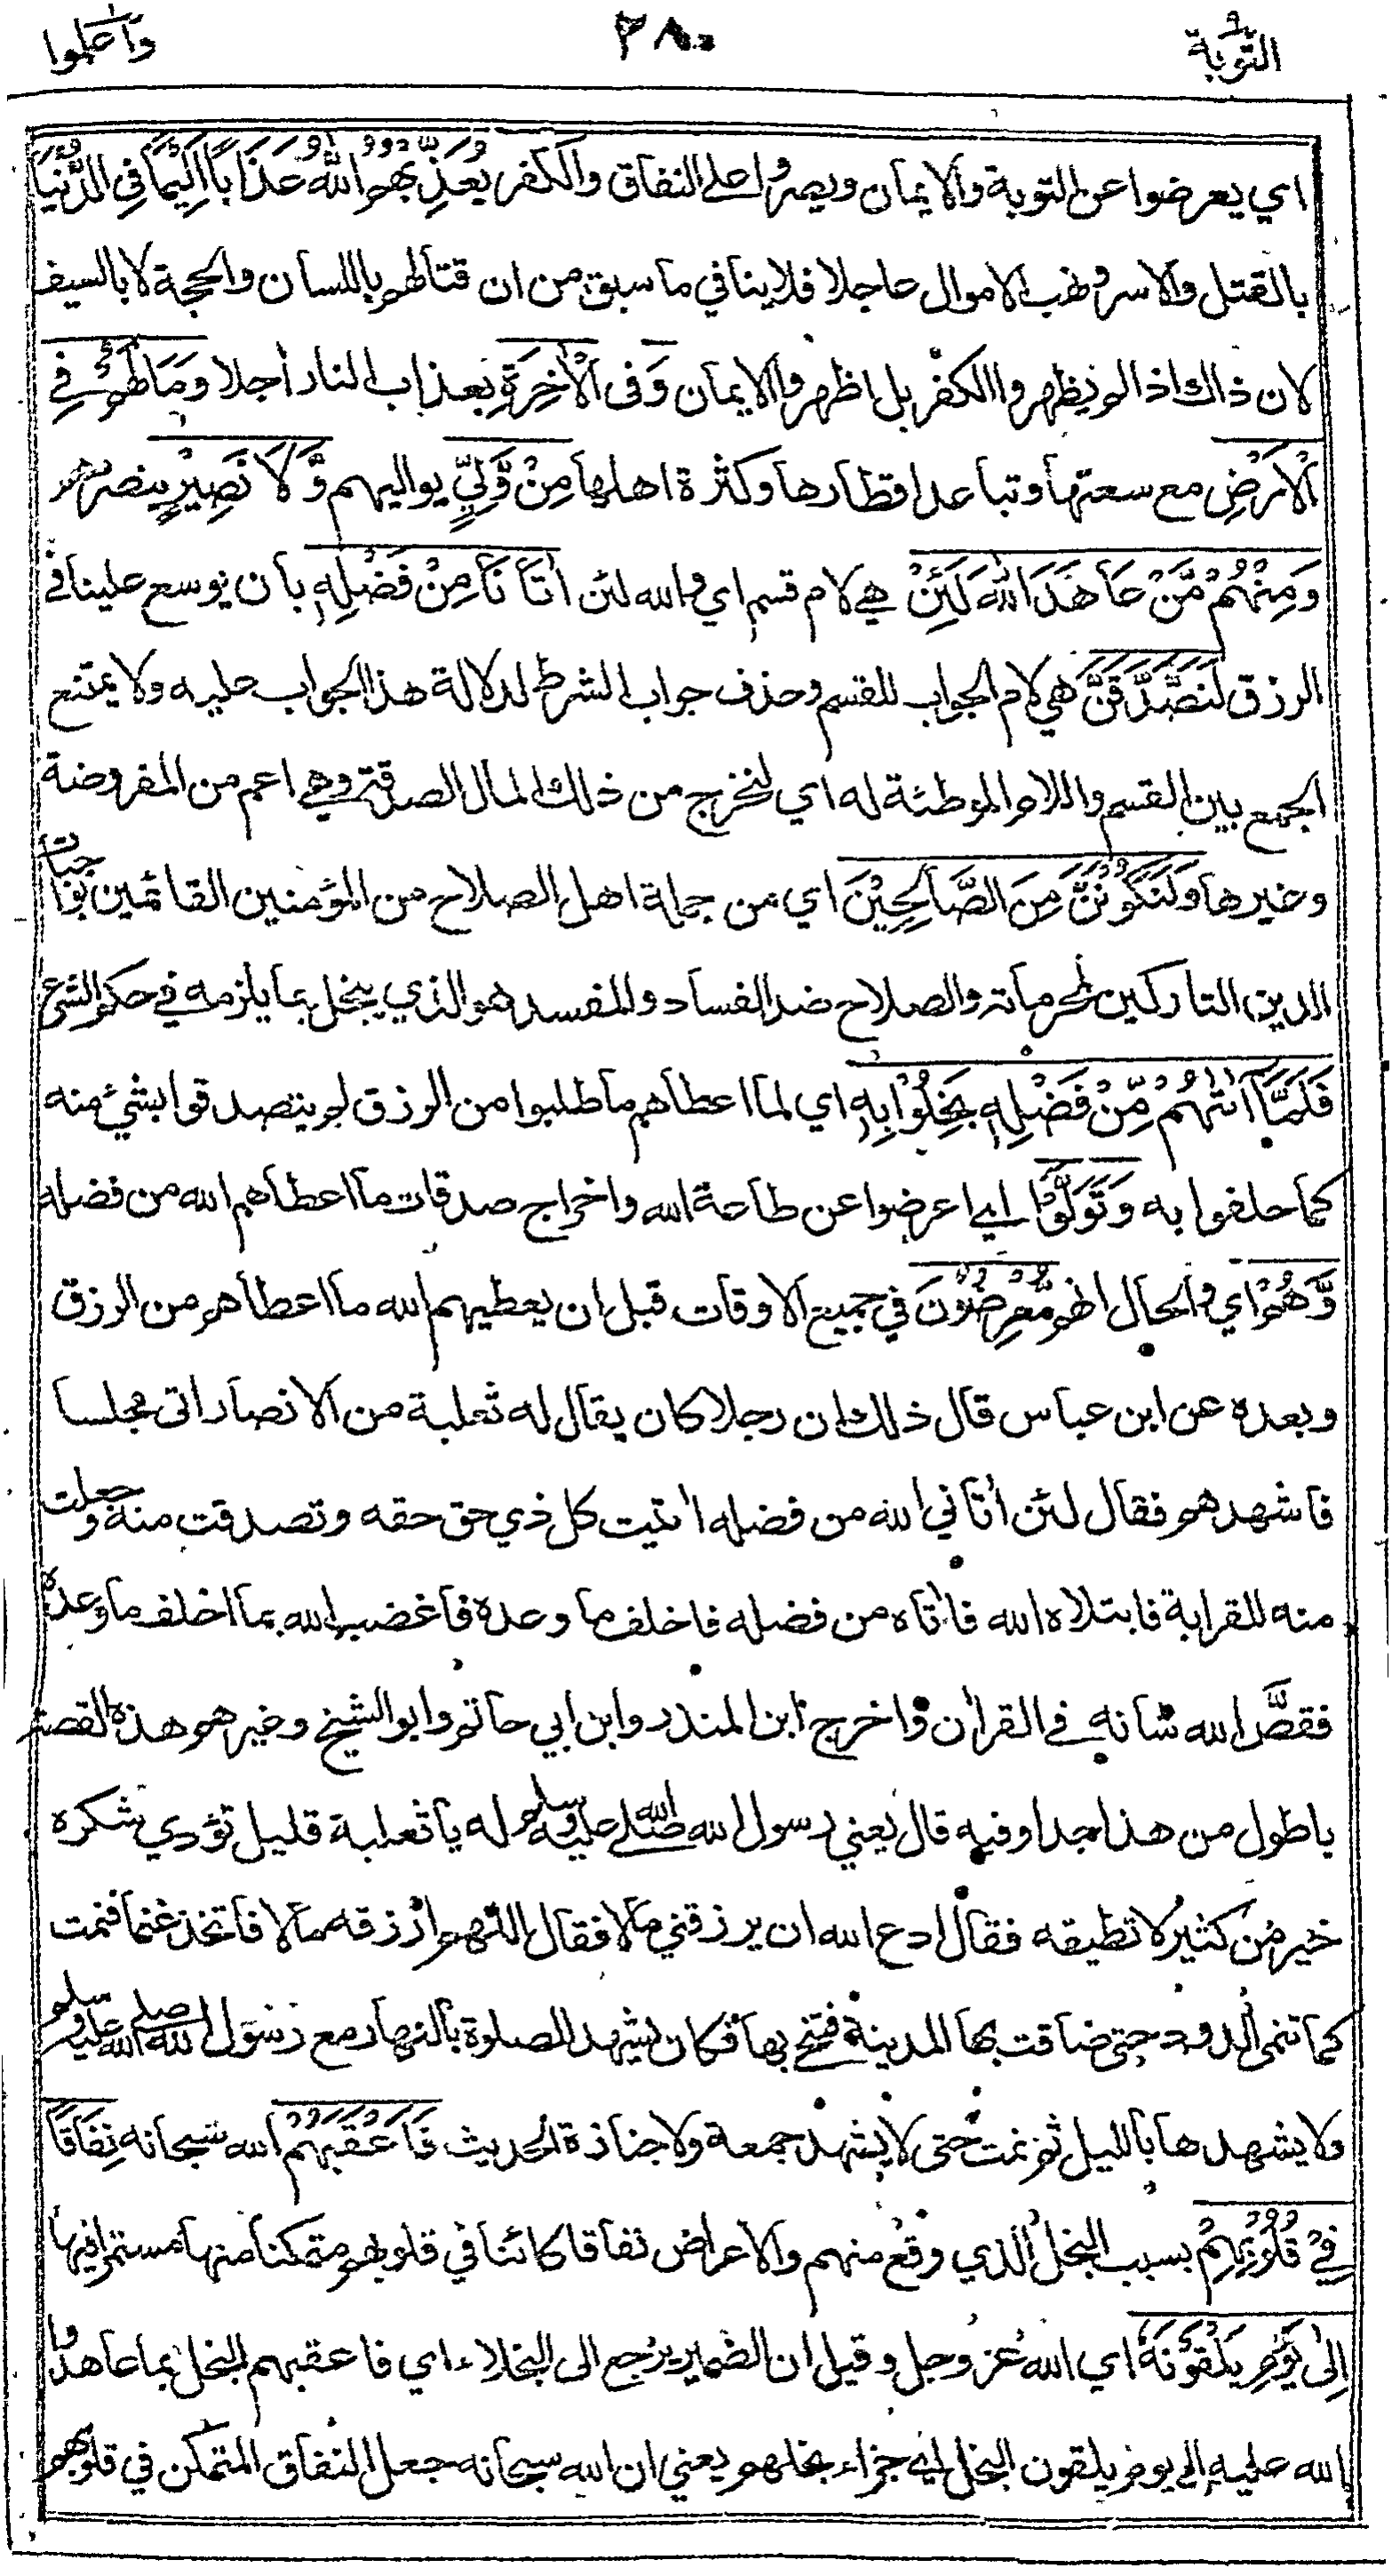 التوبة ٩
٣٨٠
واعلموا
اي يعرضوا عن التوبة والايمان ويصروا على النفاق والكفر يُعَذِّبْهُمُ اللهُ عَذَابًا اَلِيْمًا فِي الدُّنْيَا
بالقتل والاسر ونهب الاموال عاجلا فلاينافي ما سبق من ان قتالهم باللسان والحجة لا بالسيف
لان ذالك اذا لم يظهروا الكفر بل اظهروا الايمان وَفى الْاٰخِرَةِ بعذاب النار اٰجلا وَمَا لَهُمْ فِي
الْاَرْضِ مع سعتها وتباعد اقطارها وكثرة اهلها مِنْ وَّلِيٍّ يواليهم وَّلَا نَصِيْرٍ ينصرهم
وَمِنْهُمْ مَّنْ عَاهَدَ اللهَ لَئِنْ هي لام قسم اي والله لئن اٰتَانَا مِنْ فَضْلِهٖ بان يوسع علينا في
الرزق لَنَصَّدَّقَنَّ هي لام الجواب للقسم وحذف جواب الشرط لدلالة هذا الجواب عليه ولا يمتنع
الجمع بين القسم واللام الموطئة له اي لنخرج من ذلك المال الصدقة وهي اعم من المفروضة
وغيرها وَلَنَكُوْنَنَّ مِنَ الصَّالِحِيْنَ اي من جملة اهل الصلاح من المؤمنين القائمين بواجبات
الدين التاركين لمحرماته والصلاح ضد الفساد والمفسد هو الذي يبخل بما يلزمه في حكم الشرع
فَلَمَّا اٰتٰهُمْ مِّنْ فَضْلِهٖ بَخِلُوْا بِهٖ اي لما اعطاهم ما طلبوا من الرزق لم يتصدقوا بشئ منه
كما حلفوا به وَتَوَلَّوْا اي اعرضوا عن طاعة الله واخراج صدقات ما اعطاهم الله من فضله
وَّهُمْ اي والحال انهم مُّعْرِضُوْنَ في جميع الاوقات قبل ان يعطيهم الله ما اعطاهم من الرزق
وبعده عن ابن عباس قال ذلك ان رجلا كان يقال له ثعلبة من الانصار اتى مجلسا
فاشهدهم فقال لئن اٰتاني الله من فضله اٰتيت كل ذي حق حقه وتصدقت منه وجعلت
منه للقرابة فابتلاه الله فاٰتاه من فضله فاخلف ما وعده فاغضب الله بما اخلف ما وعده
فقصَّ الله شانه في القراٰن واخرج ابن المنذر وابن ابي حاتم وابو الشيخ وغيرهم هذه القصة
باطول من هذا جدا وفيه قال يعني رسول الله صلى الله عليه وسلم له يا ثعلبة قليل تؤدي شكره
خير من كثير لا تطيقه فقال ادع الله ان يرزقني مالا فقال اللهم ارزقه مالا فاتخذ غنما فنمت
كما تنمى الدود حتى ضاقت بها المدينة فتنحى بها فكان يشهد الصلوة بالنهار مع رسول الله صلى الله عليه وسلم
ولا يشهدها بالليل ثم نمت حتى لا يشهد جمعة ولا جنازة الحديث فَاَعْقَبَهُمْ الله سبحانه نِفَاقًا
فِيْ قُلُوْبِهِمْ بسبب البخل الذي وقع منهم والاعراض نفاقا كائنا في قلوبهم متمكنا منها مستمرا فيها
اِلٰى يَوْمِ يَلْقَوْنَهُ اي الله عز وجل وقيل ان الضمير يرجع الى البخلاء اي فاعقبهم البخل بما عاهدوا
الله عليه الى يوم يلقون البخل اي جزاء بخلهم يعني ان الله سبحانه جعل النفاق المتمكن في قلوبهم